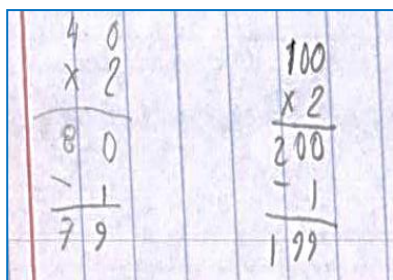 4 0
x 2
8 0
- 1
7 9
100
x 2
200
- 1
199